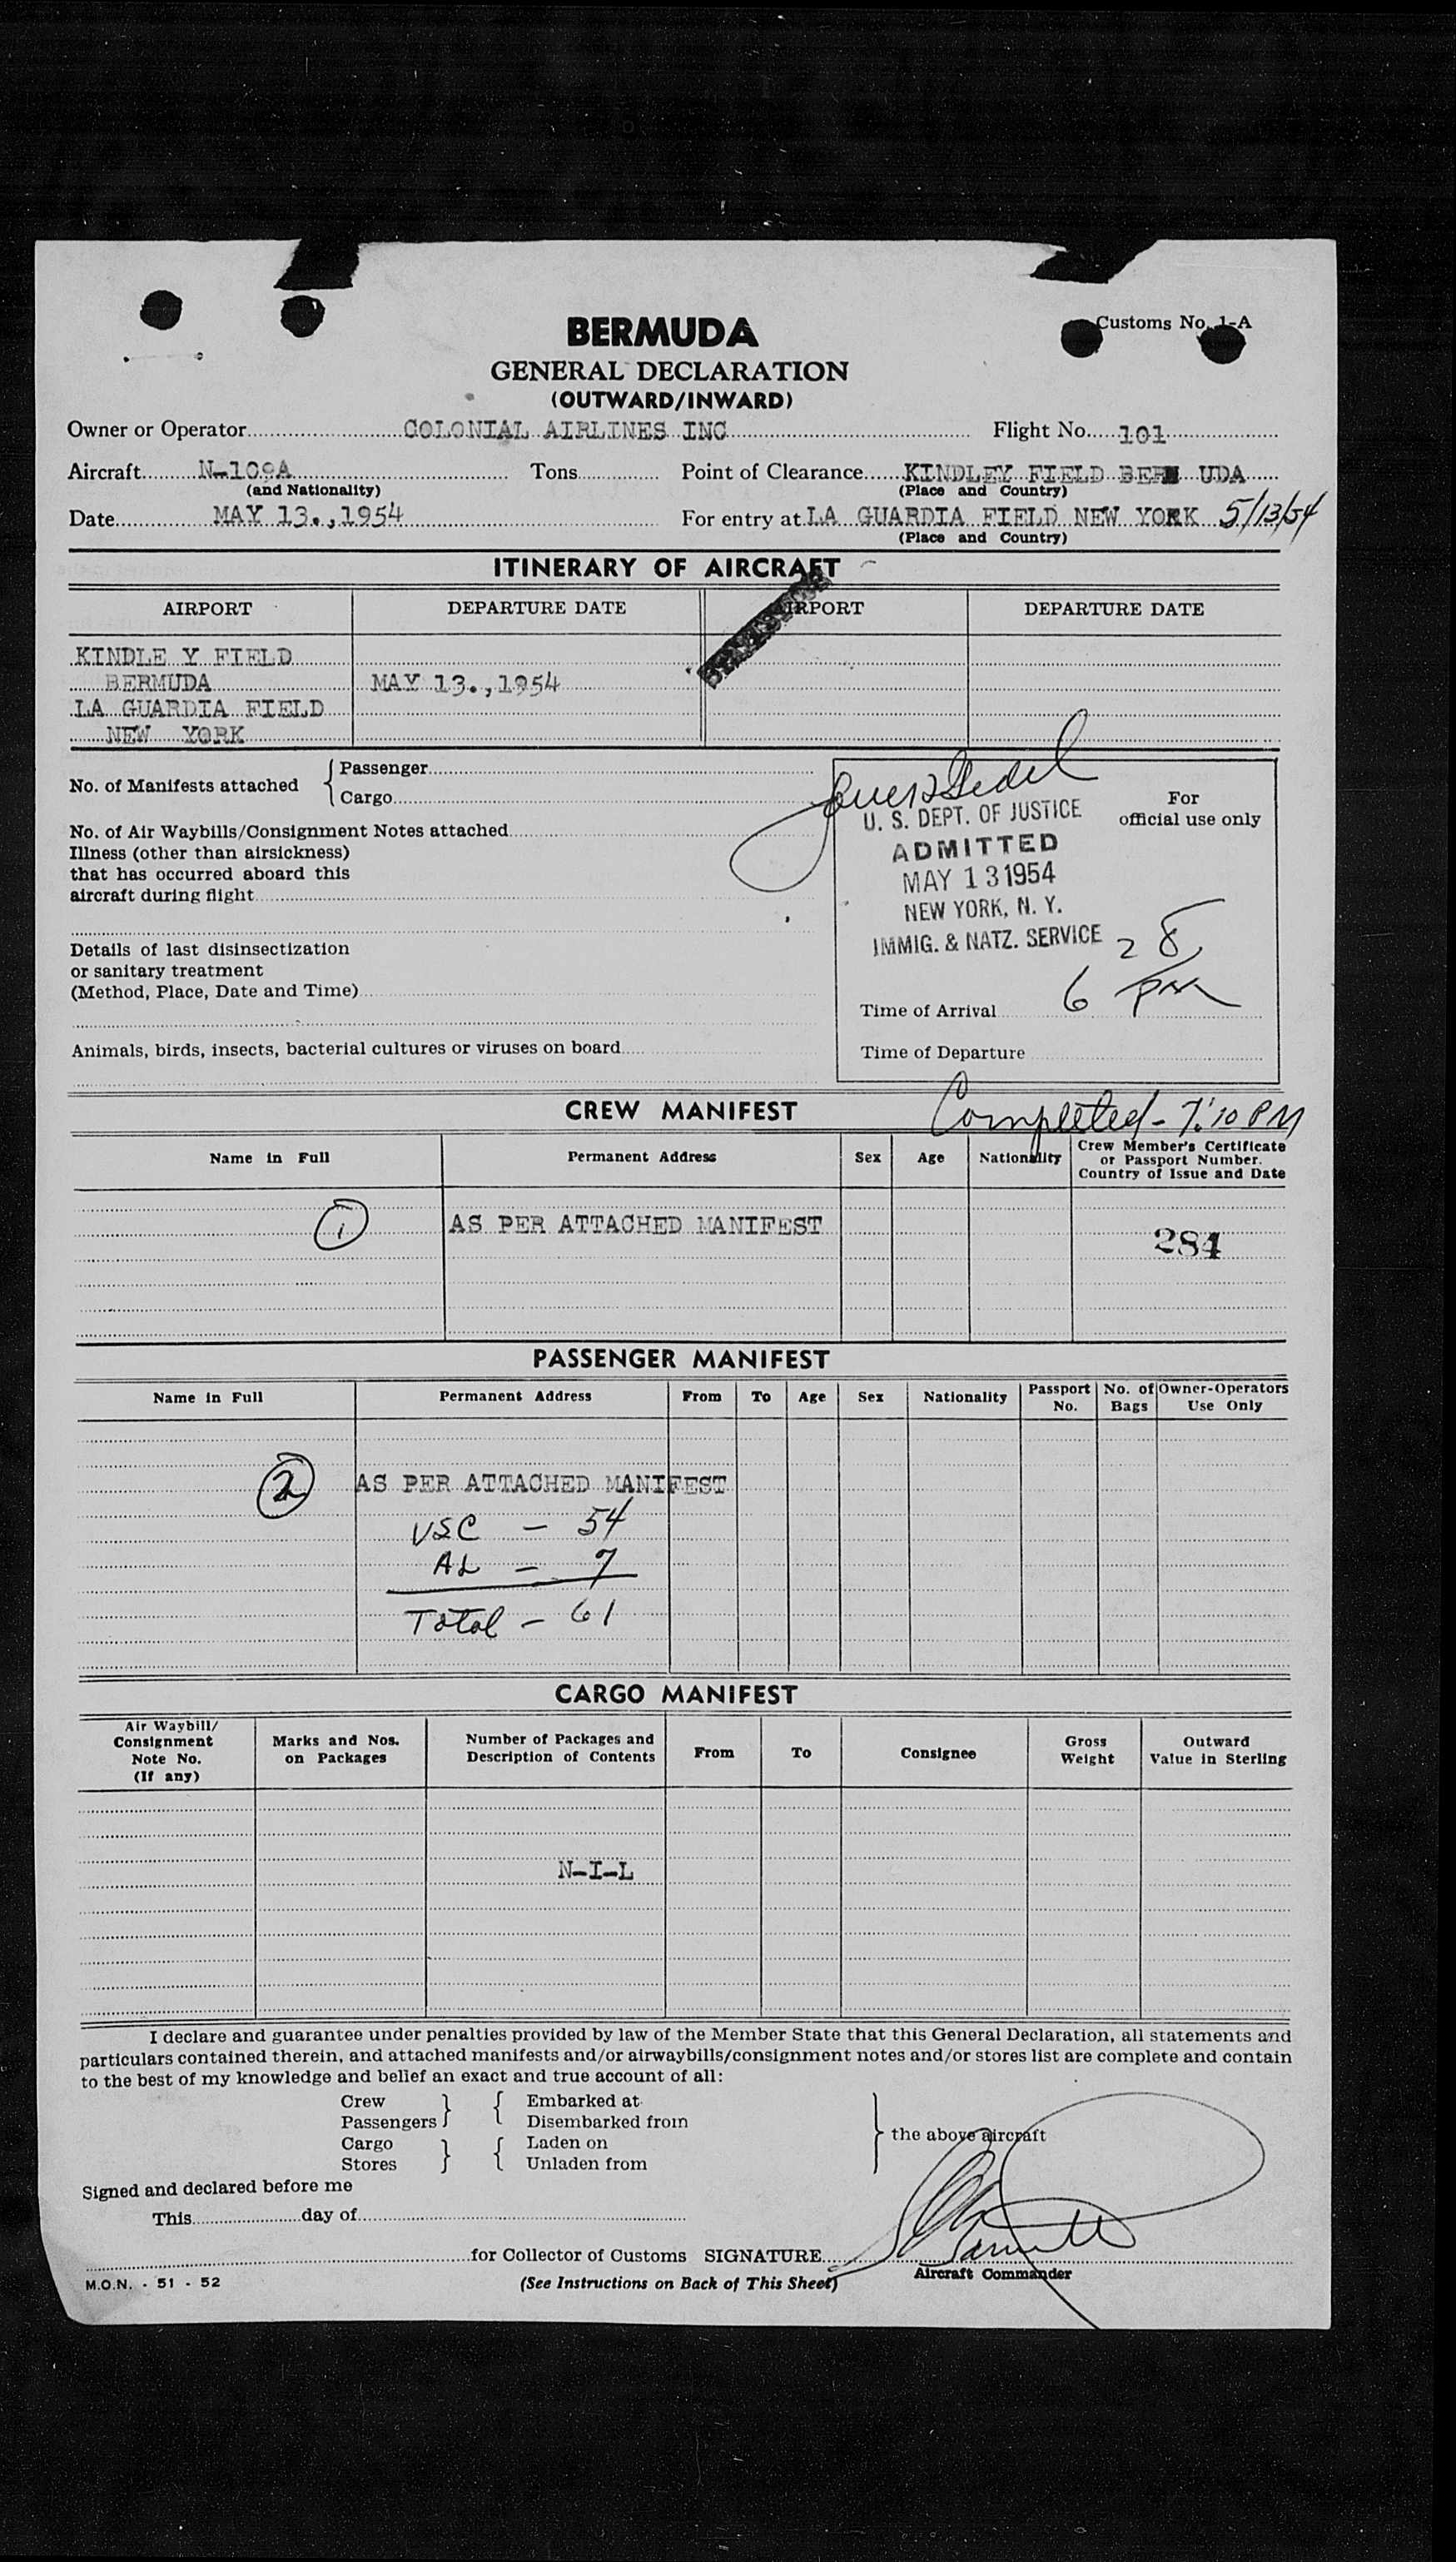 Customs No. 1-A
BERMUDA
GENERAL DECLARATION
(OUTWARD/INWARD)
Owner or Operator COLONIAL AIRLINES INC Flight No. 101
Aircraft N-109A Tons Point of Clearance KINDLEY FIELD BERM UDA
(and Nationality) (Place and Country)
Date MAY 13.,1954 For entry at LA GUARDIA FIELD NEW YORK 5/13/54
(Place and Country)
ITINERARY OF AIRCRAFT
AIRPORT DEPARTURE DATE AIRPORT DEPARTURE DATE
KINDLE Y FIELD
BERMUDA MAY 13.,1954
LA GUARDIA FIELD
NEW YORK
No. of Manifests attached { Passenger
Cargo
No. of Air Waybills/Consignment Notes attached
Illness (other than airsickness)
that has occurred aboard this
aircraft during flight
Details of last disinsectization
or sanitary treatment
(Method, Place, Date and Time)
Animals, birds, insects, bacterial cultures or viruses on board
For
official use only
U. S. DEPT. OF JUSTICE
ADMITTED
MAY 13 1954
NEW YORK, N. Y.
IMMIG. & NATZ. SERVICE
Time of Arrival 6 28 PM
Time of Departure
Completed - 7:10 PM
CREW MANIFEST
Name in Full Permanent Address Sex Age Nationality Crew Member's Certificate
or Passport Number.
Country of Issue and Date
1 AS PER ATTACHED MANIFEST
284
PASSENGER MANIFEST
Name in Full Permanent Address From To Age Sex Nationality Passport No. No. of Bags Owner-Operators Use Only
2 AS PER ATTACHED MANIFEST
USC - 54
AL - 7
Total - 61
CARGO MANIFEST
Air Waybill/
Consignment
Note No.
(If any)
Marks and Nos.
on Packages
Number of Packages and
Description of Contents
From To Consignee
Gross
Weight
Outward
Value in Sterling
N-I-L
I declare and guarantee under penalties provided by law of the Member State that this General Declaration, all statements and
particulars contained therein, and attached manifests and/or airwaybills/consignment notes and/or stores list are complete and contain
to the best of my knowledge and belief an exact and true account of all:
Crew } { Embarked at
Passengers Disembarked from
the above aircraft
Cargo } { Laden on
Stores Unladen from
Signed and declared before me
This day of
for Collector of Customs SIGNATURE
Aircraft Commander
M.O.N. - 51 - 52 (See Instructions on Back of This Sheet)